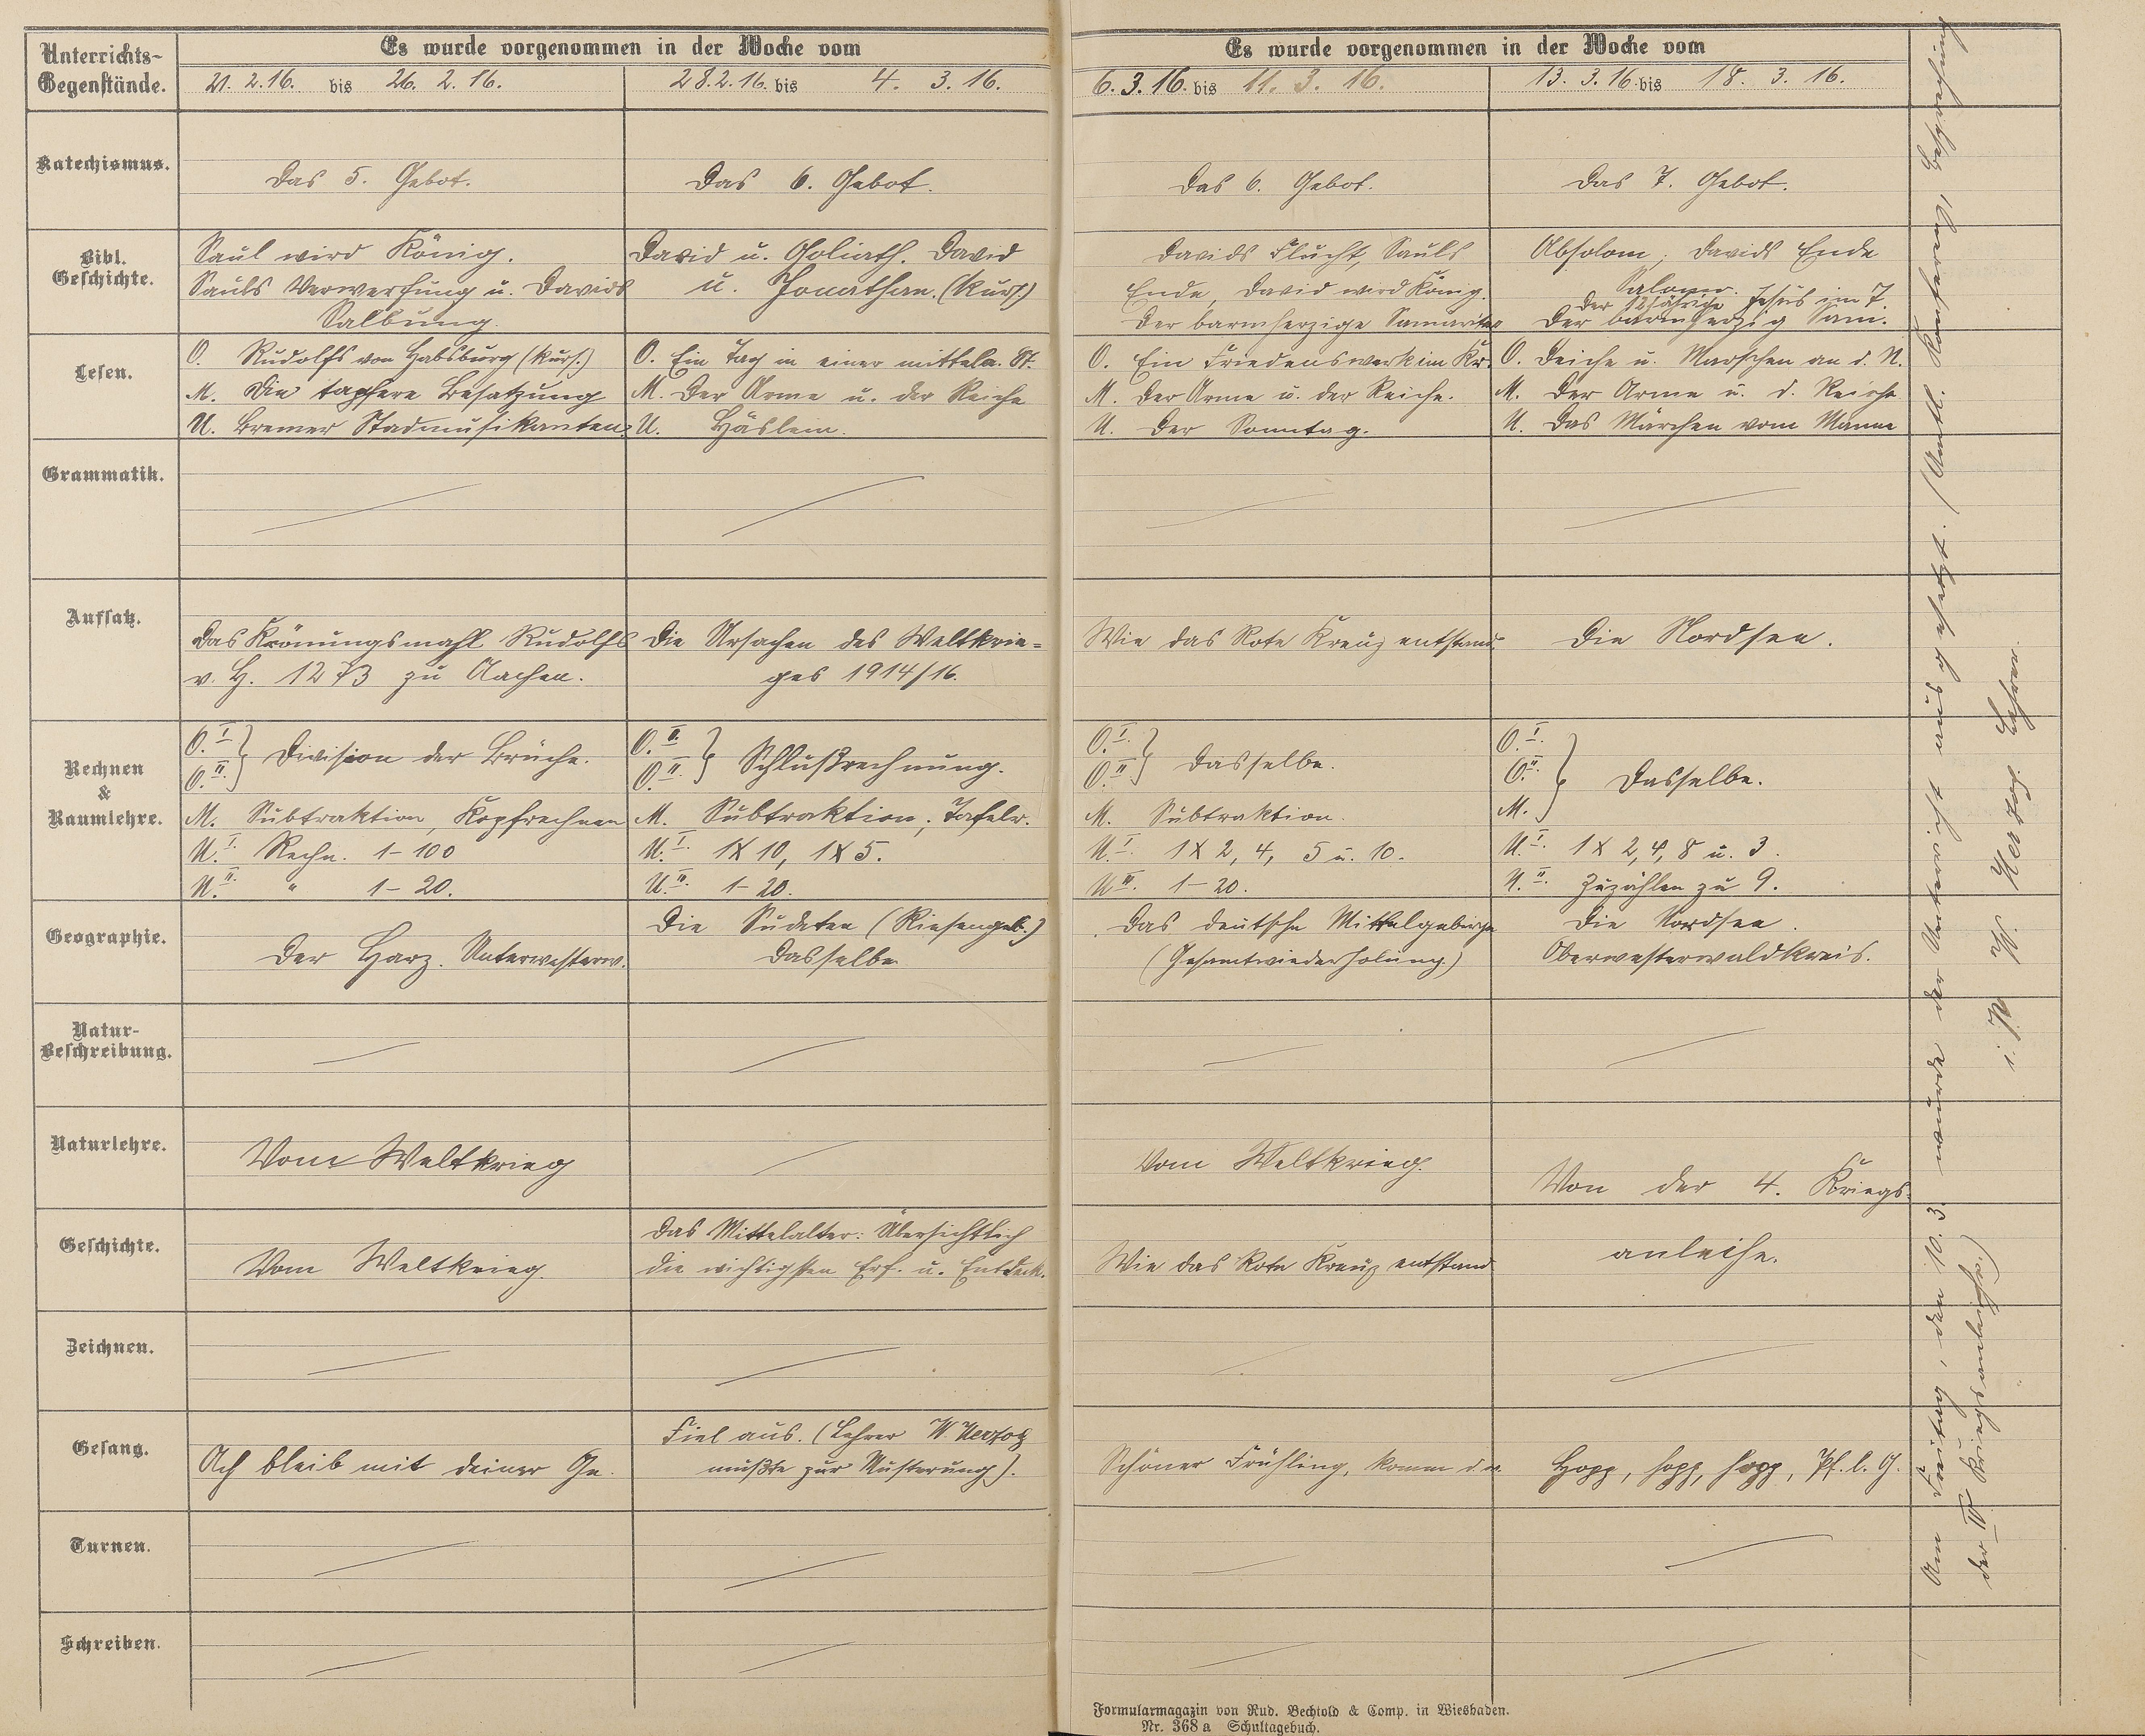 Unterrichts-
Gegenstände.
Es wurde vorgenommen in der Woche vom
Es wurde vorgenommen in der Woche vom
21. 2. 16. bis 26. 2. 16.
28. 2. 16. bis 4. 3. 16.
6. 3. 16. bis 11. 3. 16.
13. 3. 16. bis 18. 3. 16.
Katechismus.
Das 5. Gebot.
Das 6. Gebot.
Das 6. Gebot.
Das 7. Gebot.
Bibl.
Geschichte.
Saul wird König.
Sauls Verwerfung u. Davids
Salbung.
David u. Goliath. David
u. Jonathan. (kurs.)
Davids Flucht, Sauls
Ende, David wird König.
Der barmherzige Samariter
Absolom; Davids Ende
Salomo.
Der 12jährige Jesus im T.
Der barmherzig Sam.
Lesen.
O. Rudolfs von Habsburg (kurs.)
M. Die tapfere Besatzung
U. Bremer Stadmusikanten.
O. Ein Tag in einer mittela. St.
M. Der Arme u. der Reiche
U. Häslein.
O. Ein Friedenswerk im Kr.
M. Der Arme u. der Reiche.
U. Der Sonntag.
O. Deiche u. Marschen an d. N.
M. Der Arme u. d. Reiche
U. Das Märchen vom Manne
Grammatik.
Aufsatz.
Das Krönungsmahl Rudolfs
v. H. 1273 zu Aachen.
Die Ursachen des Weltkrie-
ges 1914/16.
Wie das Rote Kreuz entstand.
Die Nordsee.
Rechnen
&
Raumlehre.
O. I.
O. II. } Division der Brüche.
M. Subtraktion, Kopfrechnen
U. I. Rechn. 1-100
U. II. " 1-20.
O. I.
O. II. } Schlußrechnung.
M. Subtraktion; Tafelr.
U. I. 1x10, 1x5.
U. II. 1-20.
O. I.
O. II. } Dasselbe.
M. Subtraktion.
U. I. 1x2, 4, 5 u. 10.
U. II. 1-20.
O. I.
O. II. } Dasselbe.
M.
U. I. 1x2, 4, 8 u. 3.
U. II. Zuzählen zu 9.
Geographie.
Der Harz. Unterwesterw.
Die Sudeten (Riesengeb.)
Dasselbe
Das deutsche Mittelgebirge
(Gesamtwiederholung.)
Die Nordsee.
Oberwesterwaldkreis.
Natur-
Beschreibung.
Naturlehre.
Vom Weltkrieg
Vom Weltkrieg.
Von der 4. Kriegs-
Geschichte.
Vom Weltkrieg.
Das Mittelalter: Übersichtlich
die wichtigsten Erf. u. Entdeck.
Wie das Rote Kreuz entstand
anleihe.
Zeichnen.
Gesang.
Ach bleib mit deiner Gn.
Fiel aus. (Lehrer W. Herzog
mußte zur Musterung).
Schöner Frühling, komm d. w.
Hopp, hopp, hopp, Pf. l. G.
Turnen.
Schreiben.
Am Freitag, den 10. 3. wurde der Unterricht ausgesetzt. (Amtl. Konferenz, Besprechung
der IV Kriegsanleihe.)
i. V. W. Herzog. Lehrer.
Formularmagazin von Rud. Bechtold & Comp. in Wiesbaden.
Nr. 368 a Schultagebuch.